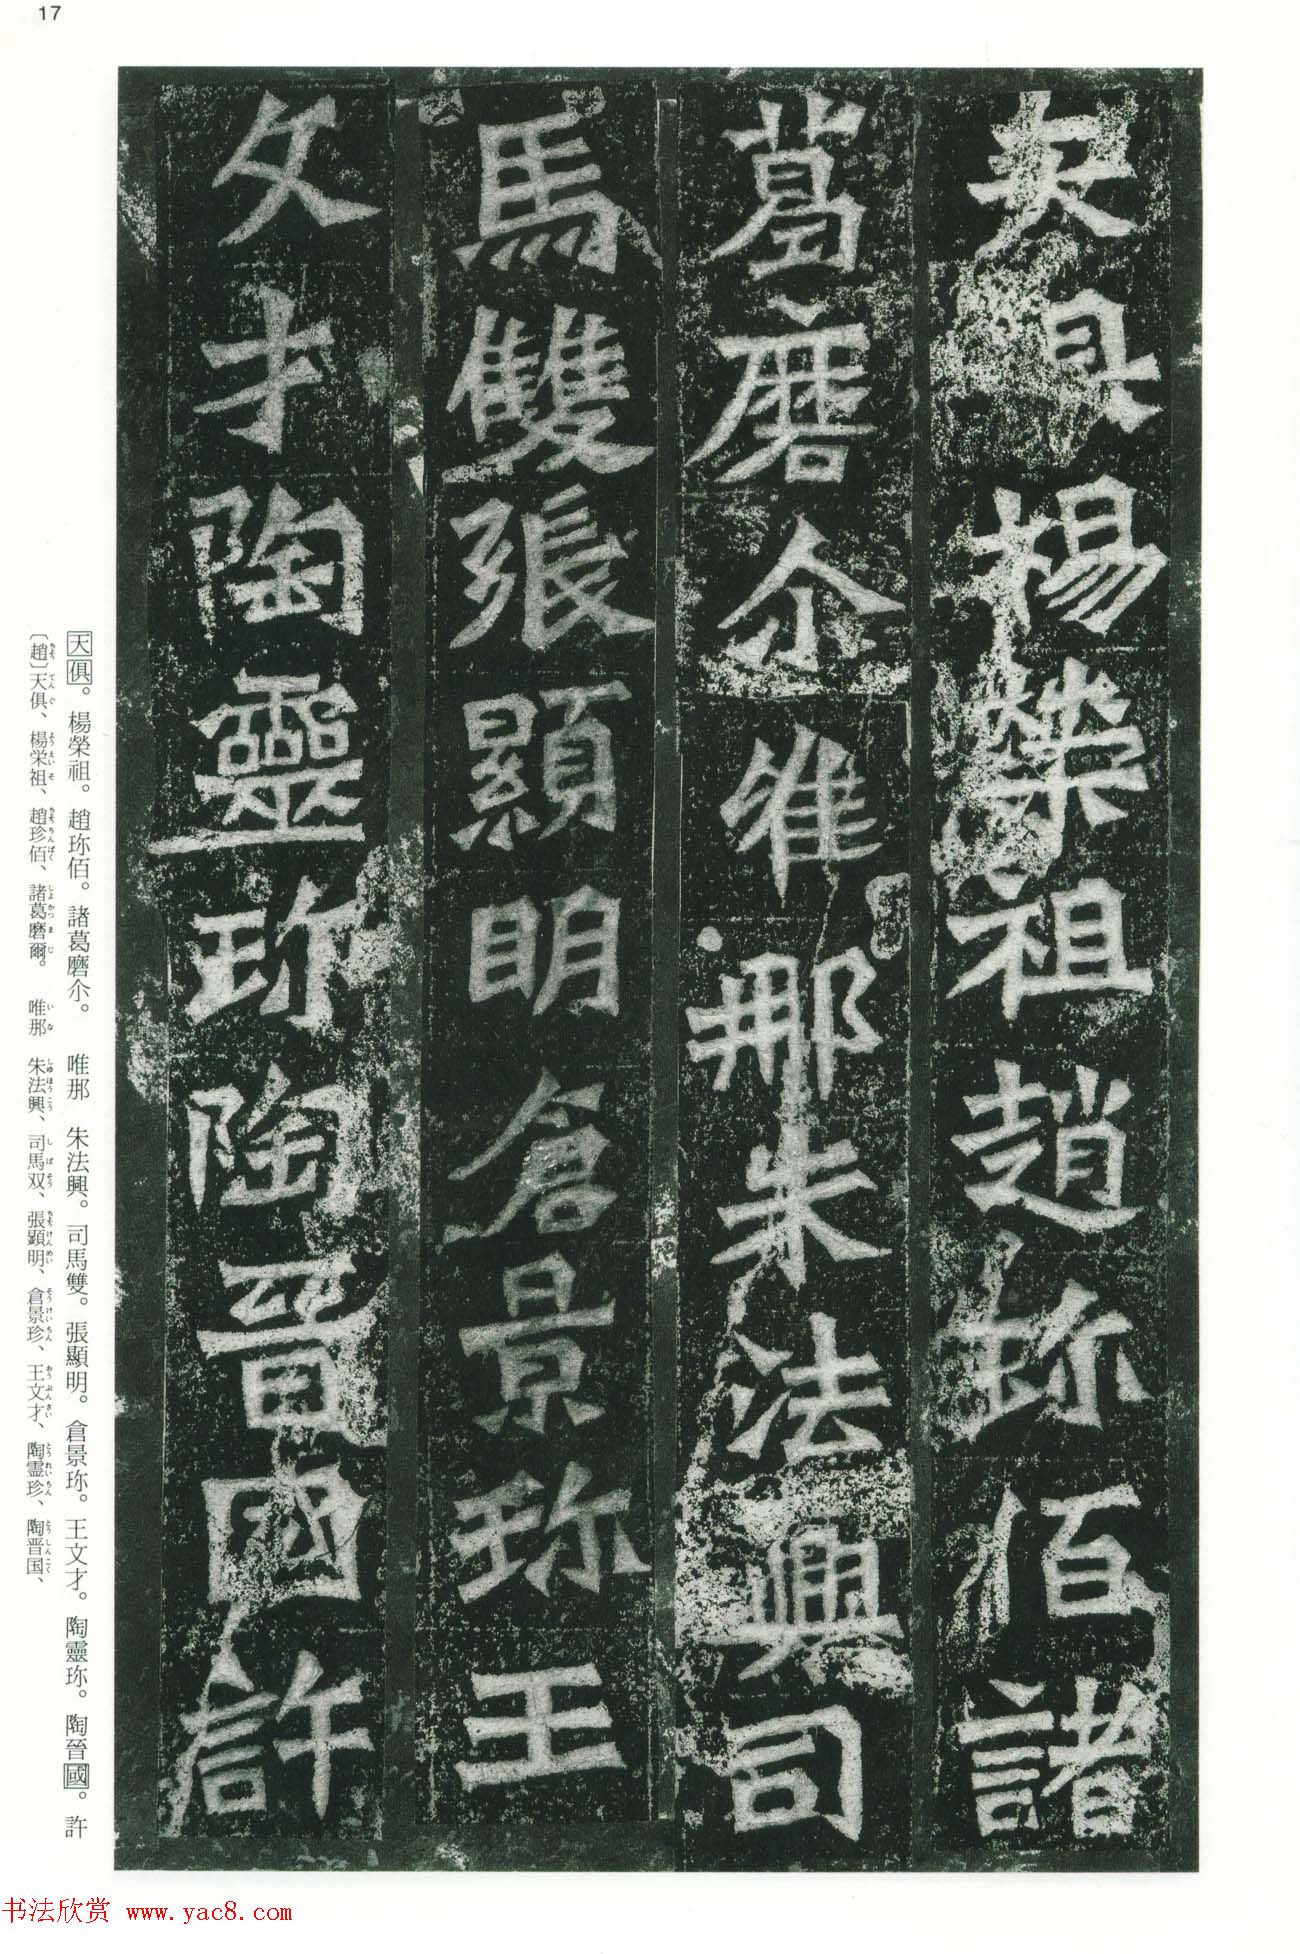 17
天俱楊榮祖趙珎佰諸
葛磨尒唯那朱法興司
馬雙張顯明倉景珎王
文才陶靈珎陶晉國許
天俱。楊榮祖。趙珎佰。諸葛磨尒。　唯那　朱法興。司馬雙。張顯明。倉景珎。王文才。陶靈珎。陶晉國。許
〔趙〕天俱、楊栄祖、趙珍佰、諸葛磨爾。　唯那　朱法興、司馬双、張顕明、倉景珍、王文才、陶霊珍、陶晋国、
书法欣赏 www.yac8.com